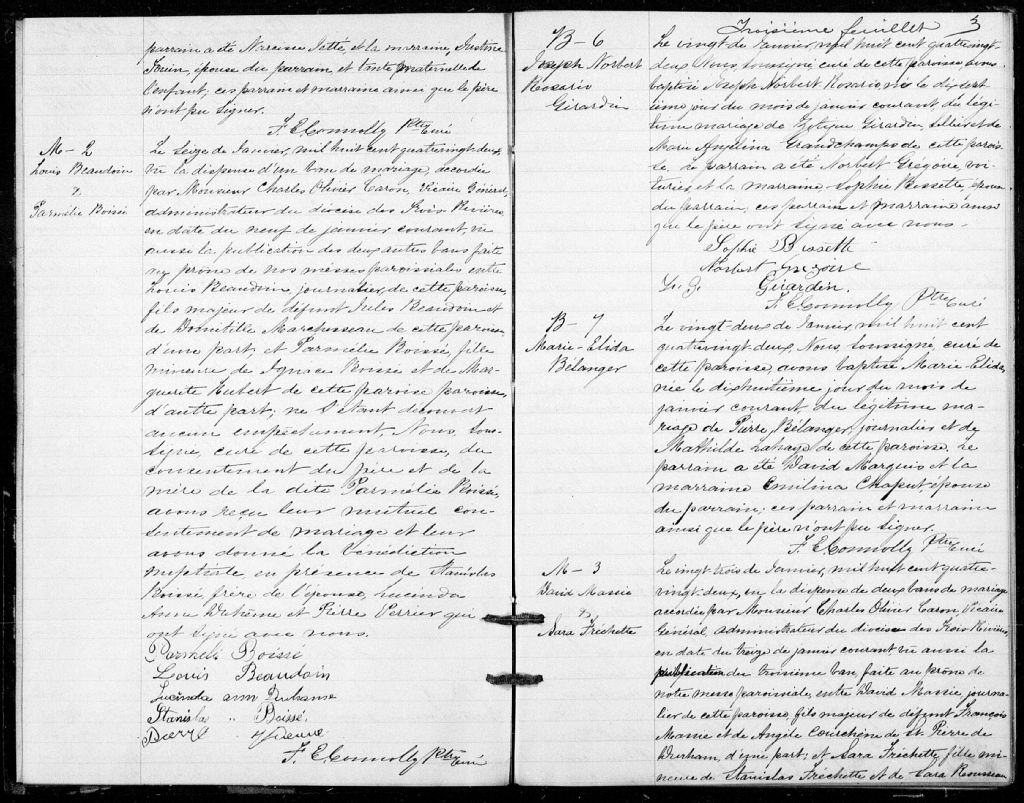 parrain a été Narcisse Jette, et la marraine, Justine
épouse du parrain, et tante maternelle de
l'enfant, ces parrain et marraine ainsi que le père
n'ont pu signer.
F. E. Connolly Ptre Curé
M - 2
Louis Beaudoin
&
Parmélie Boissé
Le Seize de Janvier, mil huit cent quatrevingt deux
Vu la dispense d'un ban de mariage, accordée
par Monsieur Charles Olivier Caron, Vicaire Général,
administrateur du diocèse des Trois Rivières
en date du neuf de janvier courant, vu
aussi la publication des deux autres bans faite
au prône de nos messes paroissiales entre
Louis Beaudoin, journalier, de cette paroisse,
fils majeur de défunt Jules Beaudoin et
de Domitilie Marchesseau de cette paroisse
d'une part; et Parmélie Boissé, fille
mineure de Ignace Boissé et de Mar-
guerite Hubert de cette paroisse paroisse,
d'autre part; ne s'étant découvert
aucun empêchement, Nous, sous-
signé, curé de cette paroisse, du
consentement du père et de la
mère de la dite Parmélie Boissé,
avons reçu leur mutuel con-
sentement de mariage et leur
avons donné la bénédiction
nuptiale, en présence de Stanislas
Boissé, frère de l'épouse, Lucinda
Ann Duhême et Pierre Verrier qui
ont signé avec nous.
Parmeli Boissé
Louis Beaudoin
Lucinda ann Duhame
Stanisla " Boissé.
F. E. Connolly Ptre Curé
Troisième feuillet 3
B - 6
Joseph Norbert
Rosario
Girardin
Le vingt de Janvier, mil huit cent quatrevingt-
deux Nous, soussigné, curé de cette paroisse avons
baptisé Joseph Norbert Rosario, né le dixsept
ième jour du mois de janvier courant du légi-
time mariage de Zotique Girardin, sellier et de
Marie Angelina Grandchamps de cette parois-
se, le parrain a été Norbert Grégoire, voi-
turier, et la marraine, Sophie Bessette, épouse
du parrain; ces parrain et marraine ainsi
que le père ont signé avec nous.
Sophie Bessette
Norbert Gregoire
Girardin.
F. E. Connolly Ptre Curé
B - 7
Marie-Elida
Bélanger
Le vingt-deux de Janvier, mil huit cent
quatrevingt-deux, Nous, soussigné, curé de
cette paroisse avons baptisé Marie-Elida,
née le dixhuitième jour du mois de
janvier courant du légitime ma-
riage de Pierre Bélanger, journalier et de
Mathilde Lahaye de cette paroisse. Le
parrain a été David Marquis et la
marraine Emilina Chaput, épouse
du parrain; ces parrain et marraine
ainsi que le père n'ont pu signer.
F. E. Connolly Ptre Curé
M - 3
David Massie
&
Sara Fréchette
Le vingt trois de Janvier, mil huit cent quatre-
vingt-deux, vu la dispense de deux bans de mariage
accordée par Monsieur Charles Olivier Caron Vicaire
Général, administrateur du diocèse des Trois Rivières,
en date du treize de janvier courant vu aussi la
publication du troisième ban, faite au prône de
notre messe paroissiale, entre David Massie, journa-
lier de cette paroisse, fils majeur de défunt François
Massie et de Angèle Courchène de St. Pierre de
Durham, d'une part; et Sara Fréchette, fille mi-
neure de Stanislas Fréchette et de Sara Rousseau